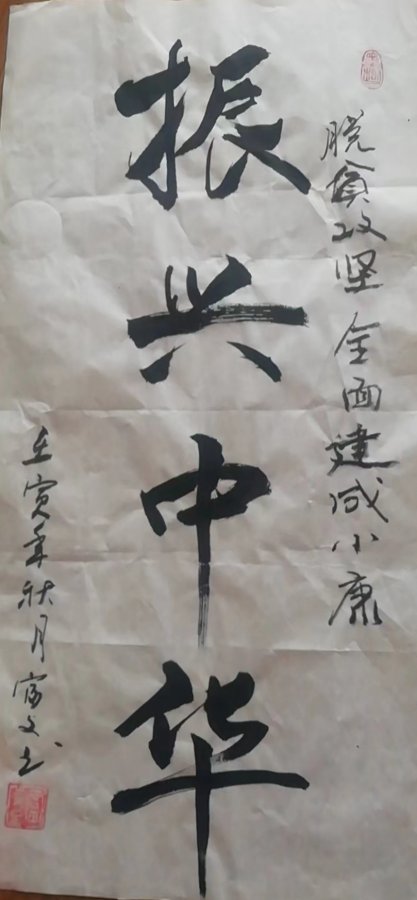 脱贫攻坚全面建成小康
振兴中华
壬寅年秋月富文书